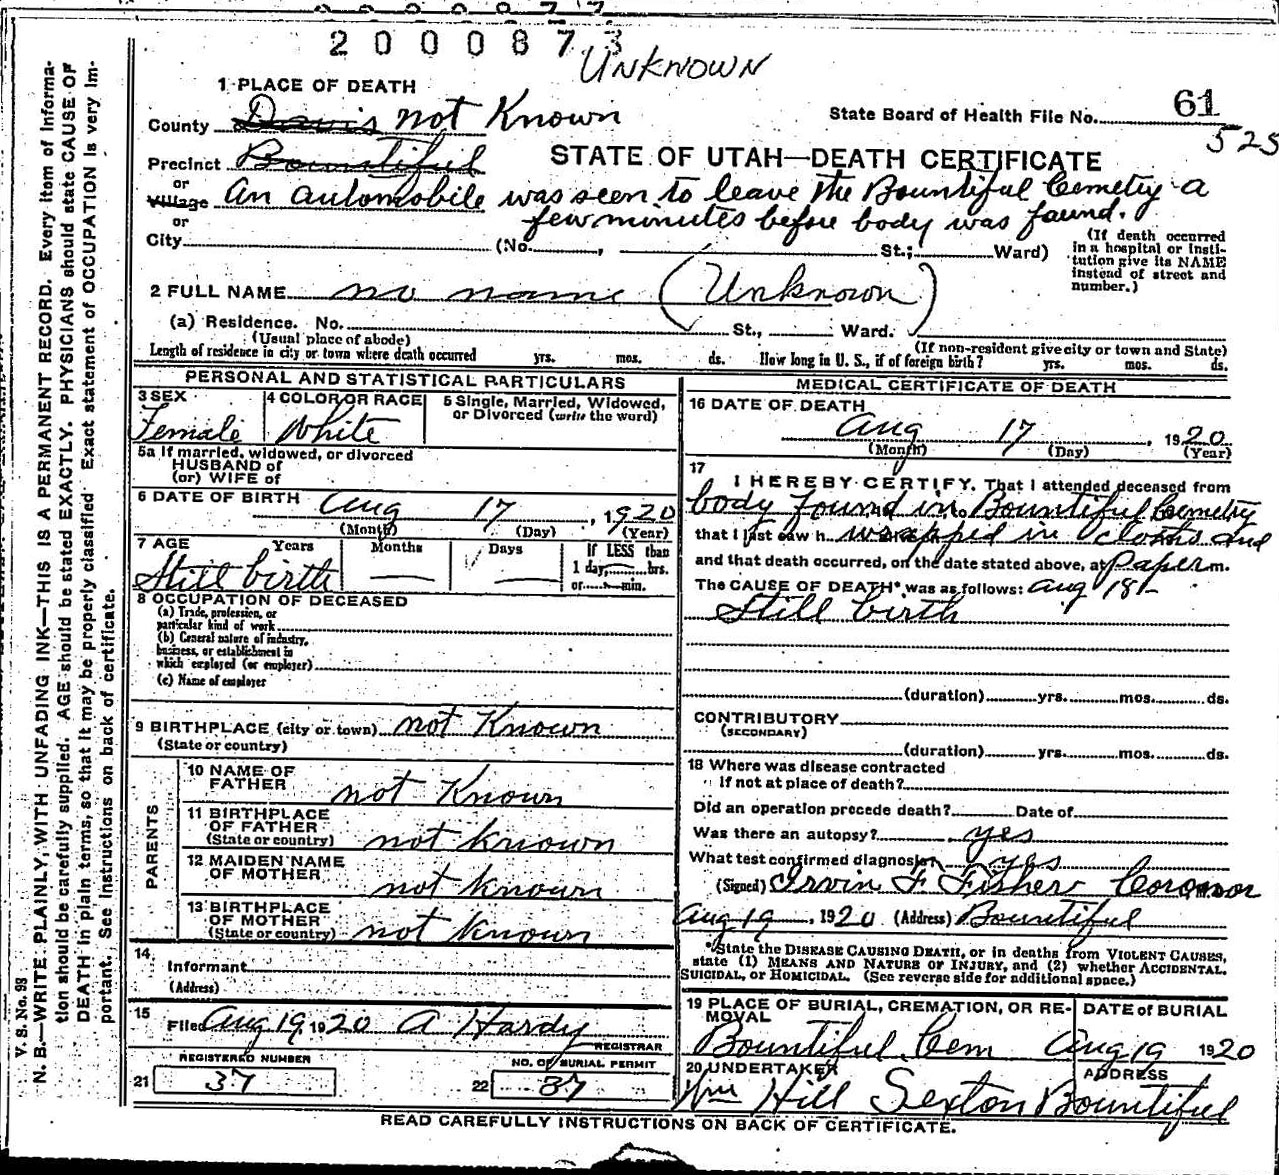 2000873
UNKNOWN
1 PLACE OF DEATH
State Board of Health File No. 61
525
County Davis not Known
STATE OF UTAH—DEATH CERTIFICATE
Precinct Bountiful
or
Village An automobile was seen to leave the Bountiful Cemetry a
few minutes before body was found.
or
City (No. , St.; Ward)
(If death occurred in a hospital or institution give its NAME instead of street and number.)
2 FULL NAME no name (Unknown)
(a) Residence. No. St., Ward.
(Usual place of abode) (If non-resident give city or town and State)
Length of residence in city or town where death occurred yrs. mos. ds. How long in U. S., if of foreign birth? yrs. mos. ds.
PERSONAL AND STATISTICAL PARTICULARS
3 SEX Female
4 COLOR OR RACE White
5 Single, Married, Widowed, or Divorced (write the word)
5a If married, widowed, or divorced
HUSBAND of
(or) WIFE of
6 DATE OF BIRTH Aug 17, 1920
(Month) (Day) (Year)
7 AGE Years Months Days If LESS than
1 day, hrs.
or min.
Still birth
8 OCCUPATION OF DECEASED
(a) Trade, profession, or
particular kind of work
(b) General nature of industry,
business, or establishment in
which employed (or employer)
(c) Name of employer
9 BIRTHPLACE (city or town) not Known
(State or country)
PARENTS
10 NAME OF
FATHER not Known
11 BIRTHPLACE
OF FATHER
(State or country) not Known
12 MAIDEN NAME
OF MOTHER not Known
13 BIRTHPLACE
OF MOTHER
(State or country) not Known
14
Informant
(Address)
15
Filed Aug 19, 1920 A Hardy
REGISTRAR
REGISTERED NUMBER
21 37
NO. OF BURIAL PERMIT
22 37
MEDICAL CERTIFICATE OF DEATH
16 DATE OF DEATH
Aug 17, 1920
(Month) (Day) (Year)
17
I HEREBY CERTIFY, That I attended deceased from
body found in Bountiful Cemetry
that I last saw h wrapped in cloths and
and that death occurred, on the date stated above, at paper m.
The CAUSE OF DEATH* was as follows: Aug 18-
Still birth
(duration) yrs. mos. ds.
CONTRIBUTORY
(SECONDARY)
(duration) yrs. mos. ds.
18 Where was disease contracted
if not at place of death?
Did an operation precede death? Date of
Was there an autopsy? yes
What test confirmed diagnosis? yes
(Signed) Irvin F Fisher Coronor
Aug 19, 1920 (Address) Bountiful
*State the DISEASE CAUSING DEATH, or in deaths from VIOLENT CAUSES,
state (1) MEANS AND NATURE OF INJURY, and (2) whether ACCIDENTAL,
SUICIDAL, or HOMICIDAL. (See reverse side for additional space.)
19 PLACE OF BURIAL, CREMATION, OR RE-
MOVAL
DATE of BURIAL
Bountiful Cem Aug 19 1920
20 UNDERTAKER
ADDRESS
Wm Hill Sexton Bountiful
READ CAREFULLY INSTRUCTIONS ON BACK OF CERTIFICATE.
V. S. No. 98
N. B.—WRITE PLAINLY, WITH UNFADING INK—THIS IS A PERMANENT RECORD. Every item of Informa-
tion should be carefully supplied. AGE should be stated EXACTLY. PHYSICIANS should state CAUSE OF
DEATH in plain terms, so that it may be properly classified. Exact statement of OCCUPATION is very Im-
portant. See instructions on back of certificate.